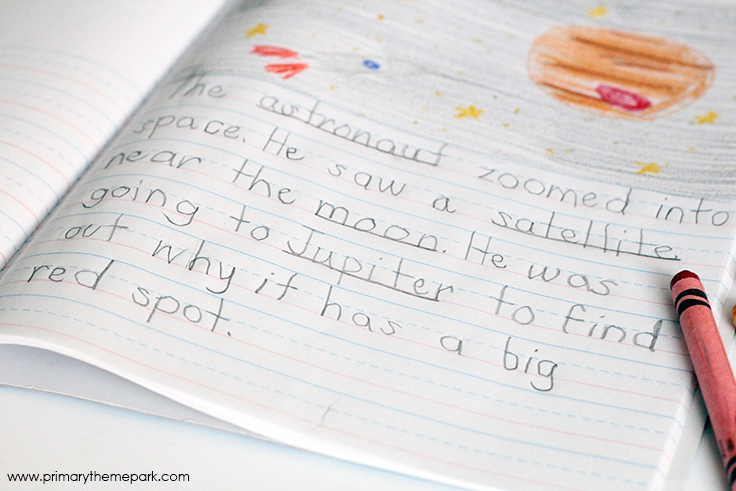 The astronaut zoomed into
space. He saw a satellite
near the moon. He was
going to Jupiter to find
out why it has a big
red spot.
www.primarythemepark.com